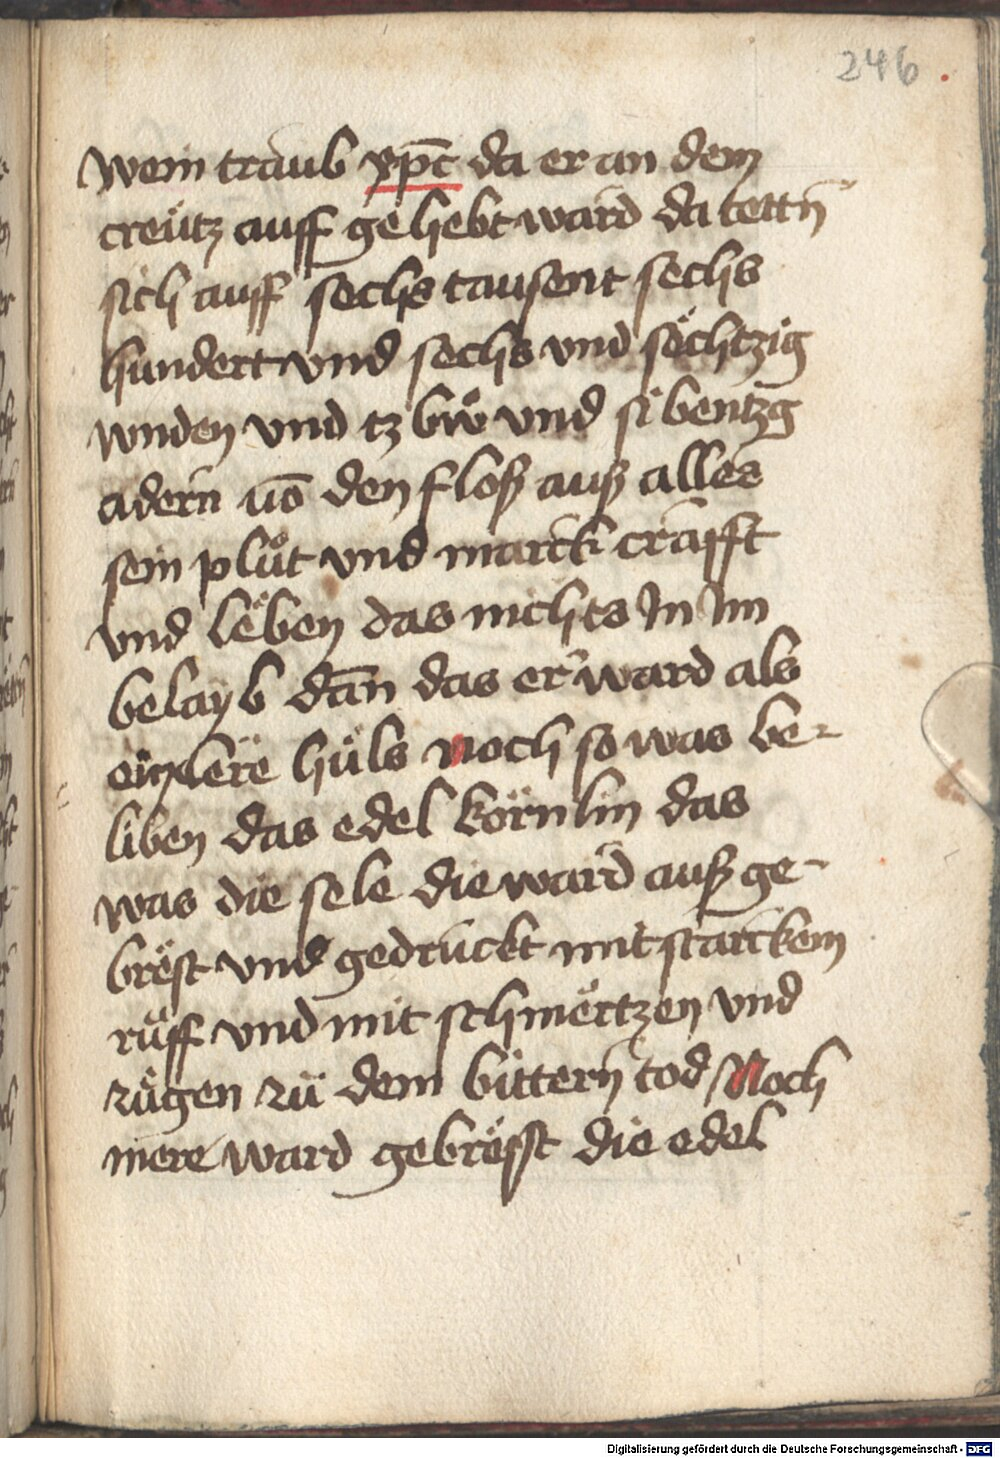 246
wein traub xp̄c da er an dem
creütz auff gehebt ward da tettn̄
sich auff sechs tausent sechs
hundert vnd sechs vnd sëchtzig
wnden vnd tzbwö vnd sibentzg
adern vō den floß auß alles
sein plůt vnd marck crafft
vnd lëben das nichts In Im
belayb dān das er ward als
ein lëre hüls noch so was be-
liben das edel körnlin das
was die sele die ward auß ge-
brëst vnd gedruckt mit starckem
rüff vnd mit schmërtzen vnd
zügen zü dem bittern tod Noch
mere ward gebrësst die edel
Digitalisierung gefördert durch die Deutsche Forschungsgemeinschaft - DFG